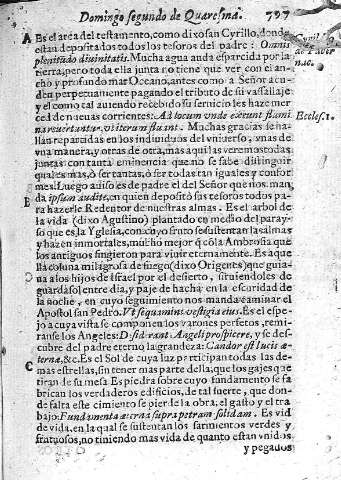 Domingo segundo de Quaresma. 797
A Es el arca del testamento, como dixo san Cyrillo, donde
estan depositados todos los tesoros del padre: Omnis
plenitudo diuinitatis. Mucha agua anda esparcida por la
tierra, pero toda ella junta no tiene que ver con el an-
cho y profundo mar Oceano, antes como a Señor acu-
den perpetuamente pagando el tributo de su vassallaje
y el como tal auiendo recebido su seruicio les haze mer
ced de nueuas corrientes: Ad locum vnde exeunt flumi
na reuertantur, vt iterum fluant. Muchas gracias se ha-
Eccles. 1.
llan repartidas en los indiuiduos del vniuerso, vnas de
vna manera, y otras de otra, mas aqui las veremos todas
juntas con tanta eminencia que no se sabe distinguir
quales mas, ò ser tantas, ò ser todas tan iguales y confor
mes. Luego auiso es de padre el del Señor que nos man-
B da ipsum audite, en quien depositò sus tesoros todos pa
ra hazerle Redentor de nuestras almas. Es el arbol de
la vida (dixo Agustino) plantado en medio del paray-
so que es la Yglesia, con cuyo fruto se sustentan las almas
y hazen inmortales, mucho mejor q̃ cõ la Ambrosia que
los antiguos fingieron para viuir eternamente. Es aque
lla coluna milagrosa de fuego (dixo Origenes) que guia-
ua a los hijos de Israel por el desierto, siruiendoles de
guardasol entre dia, y paje de hacha en la escuridad de
la noche, en cuyo seguimiento nos manda caminar el
Apostol san Pedro. Vt sequamini vestigia eius. Es el espe-
jo a cuya vista se componen los varones perfetos, remi-
ranse los Angeles: Desiderant Angeli prospicere, y se des-
cubre del padre eterno la grandeza: Candor est lucis æ-
terna, &c. Es el Sol de cuya luz participan todas las de-
C mas estrellas, sin tener mas parte della, que los gajes que
tiran de su mesa. Es piedra sobre cuyo fundamento se fa
brican los verdaderos edificios, de tal suerte, que don-
de falta este cimiento se pierde la obra, el gasto y el tra
bajo: Fundamenta æterna supra petram solidam. Es vid
de vida, en la qual se sustentan los sarmientos verdes y
fratuosos, no tiniendo mas vida de quanto estan vnidos
y pegados